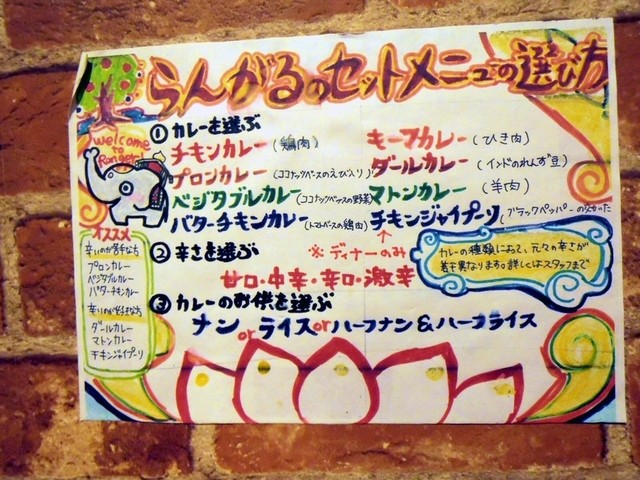 らんがるのセットメニューの選び方
welcome
to
Rangar
① カレーを選ぶ
チキンカレー (鶏肉)
キーマカレー (ひき肉)
プロンカレー (ココナッツベースのえび入り)
ダールカレー (インドのれんず豆)
ベジタブルカレー (ココナッツベースの野菜)
マトンカレー (羊肉)
バターチキンカレー (トマトベースの鶏肉)
チキンジャイプーリ (ブラックペッパーの効いた
② 辛さを選ぶ
※ディナーのみ
甘口・中辛・辛口・激辛
カレーの種類によって、元々の辛さが
若干異なります。詳しくはスタッフまで
③ カレーのお供を選ぶ
ナン or ライス or ハーフナン & ハーフライス
オススメ
辛いのが苦手な方
プロンカレー
ベジタブルカレー
バターチキンカレー
辛いのが好きな方
ダールカレー
マトンカレー
チキンジャイプーリ